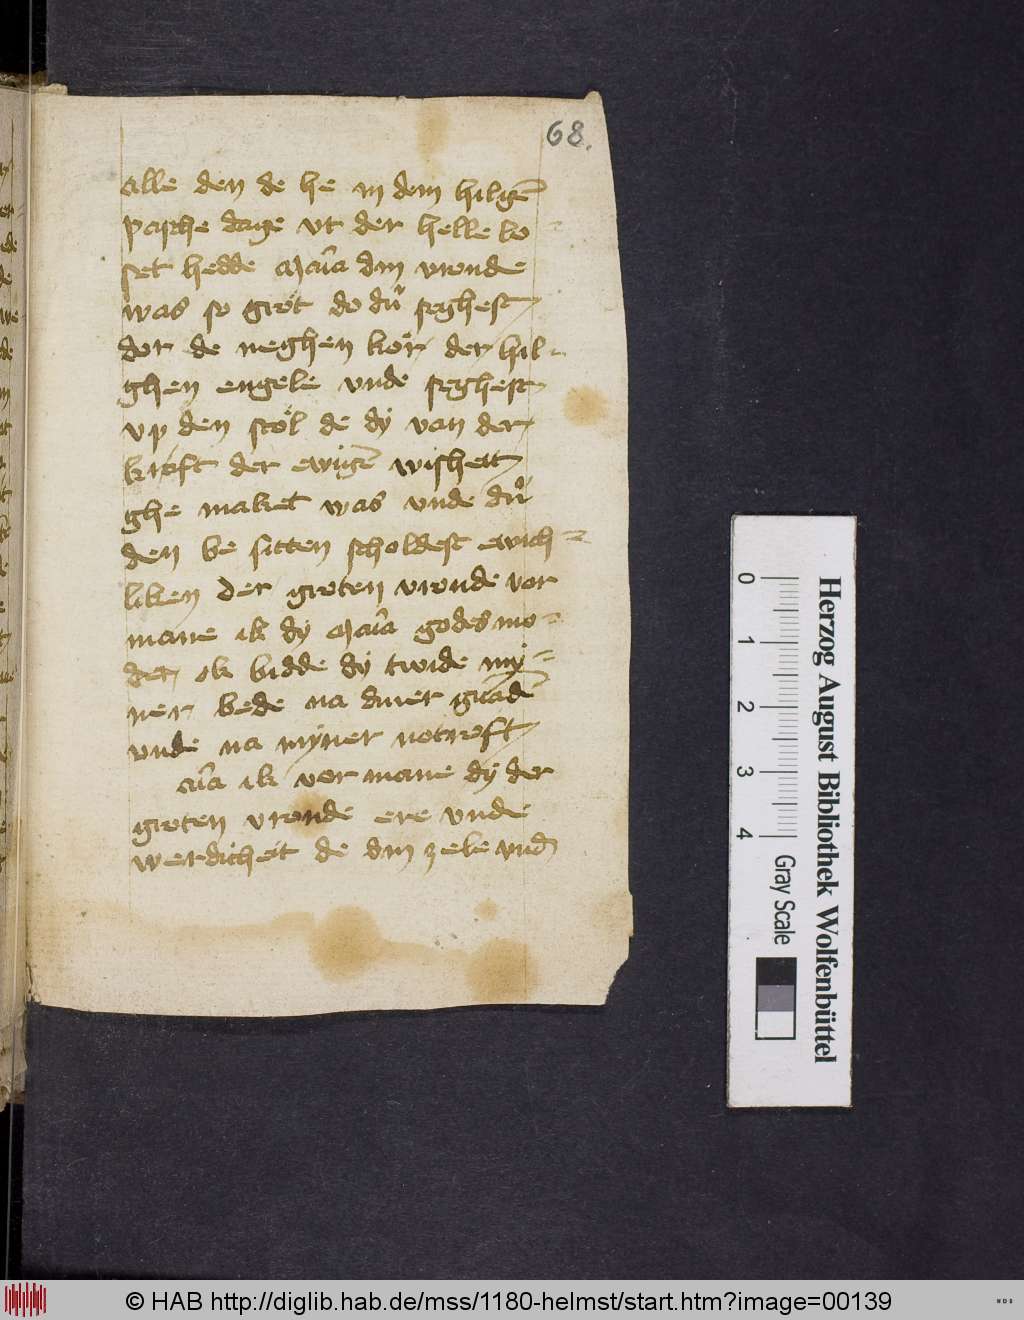 68.
alle den de he in dem hilgen̄
pasche dage vt der helle lo =
set hedde Maīa din vronde
was so grot do dů seghest
dor de neghen kör der hil =
ghen engele vnde seghest
vp den stöl de dÿ van der
kreft der ewigen̄ wisheit
ghe maket was vnde dů
den be sitten scholdest ewich =
liken der groten vronde vor
mane ik dÿ Maīa godes mo =
der ik bidde dÿ twide mÿ =
ner bede na diner gnaden̄
vnde na mÿner notreft
aīa ik vor mane dÿ der
groten vronde ere vnde
werdicheit de din zele vnd̄
Herzog August Bibliothek Wolfenbüttel
0 1 2 3 4 Gray Scale
© HAB http://diglib.hab.de/mss/1180-helmst/start.htm?image=00139